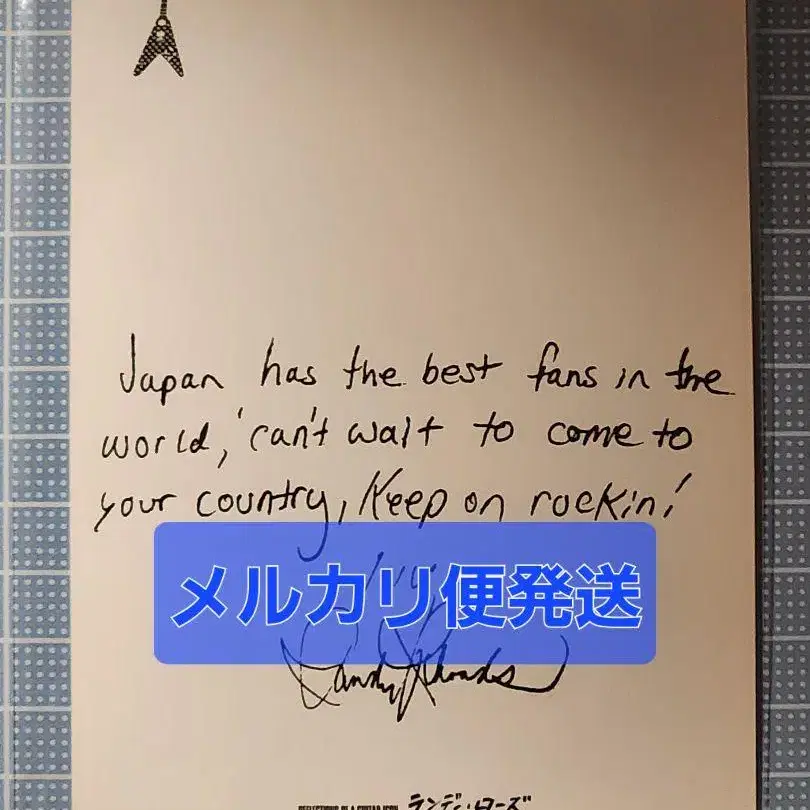 Japan has the best fans in the
world, can't wait to come to
your country, Keep on rockin!
メルカリ便発送
Randy Rhoads
REFLECTIONS OF A GUITAR ICON ランディ・ローズ